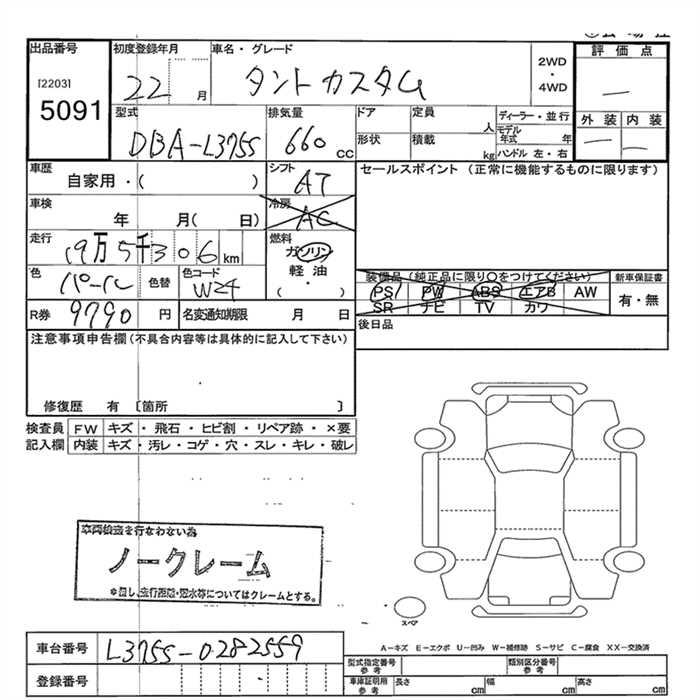 出品番号
[2203]
5091
初度登録年月
22 月
車名・グレード
タントカスタム
2WD
・
4WD
評価点
—
外装 内装
— —
型式
DBA-L375S
排気量
660 cc
ドア
形状
定員
人
積載
kg
ディーラー・並行
モデル年式 年
ハンドル 左・右
車歴
自家用・( )
シフト
AT
セールスポイント (正常に機能するものに限ります)
車検
年 月( 日)
冷房
AC
走行
19万5千306km
燃料
ガソリン
軽油
( ・ )
色
パール
色替
色コード
W24
装備品(純正品に限り○をつけてください)
PS PW ABS エアB AW
SR ナビ TV カワ
新車保証書
有・無
R券
9790 円
名変通知期限 月 日
後日品
注意事項申告欄(不具合内容等は具体的に記入して下さい)
修復歴 有 〔箇所 〕
検査員 FW キズ・飛石・ヒビ割・リペア跡・×要
記入欄 内装 キズ・汚レ・コゲ・穴・スレ・キレ・破レ
車両検査を行わない為
ノークレーム
*但し、走行距離・冠水等についてはクレームとする。
スペア
A-キズ E-エクボ U-凹み W-補修跡 S-サビ C-腐食 XX-交換済
車台番号
L375S-0282559
登録番号
型式指定番号
参考
類別区分番号
参考
車庫証明用
参考
長さ cm 幅 cm 高さ cm